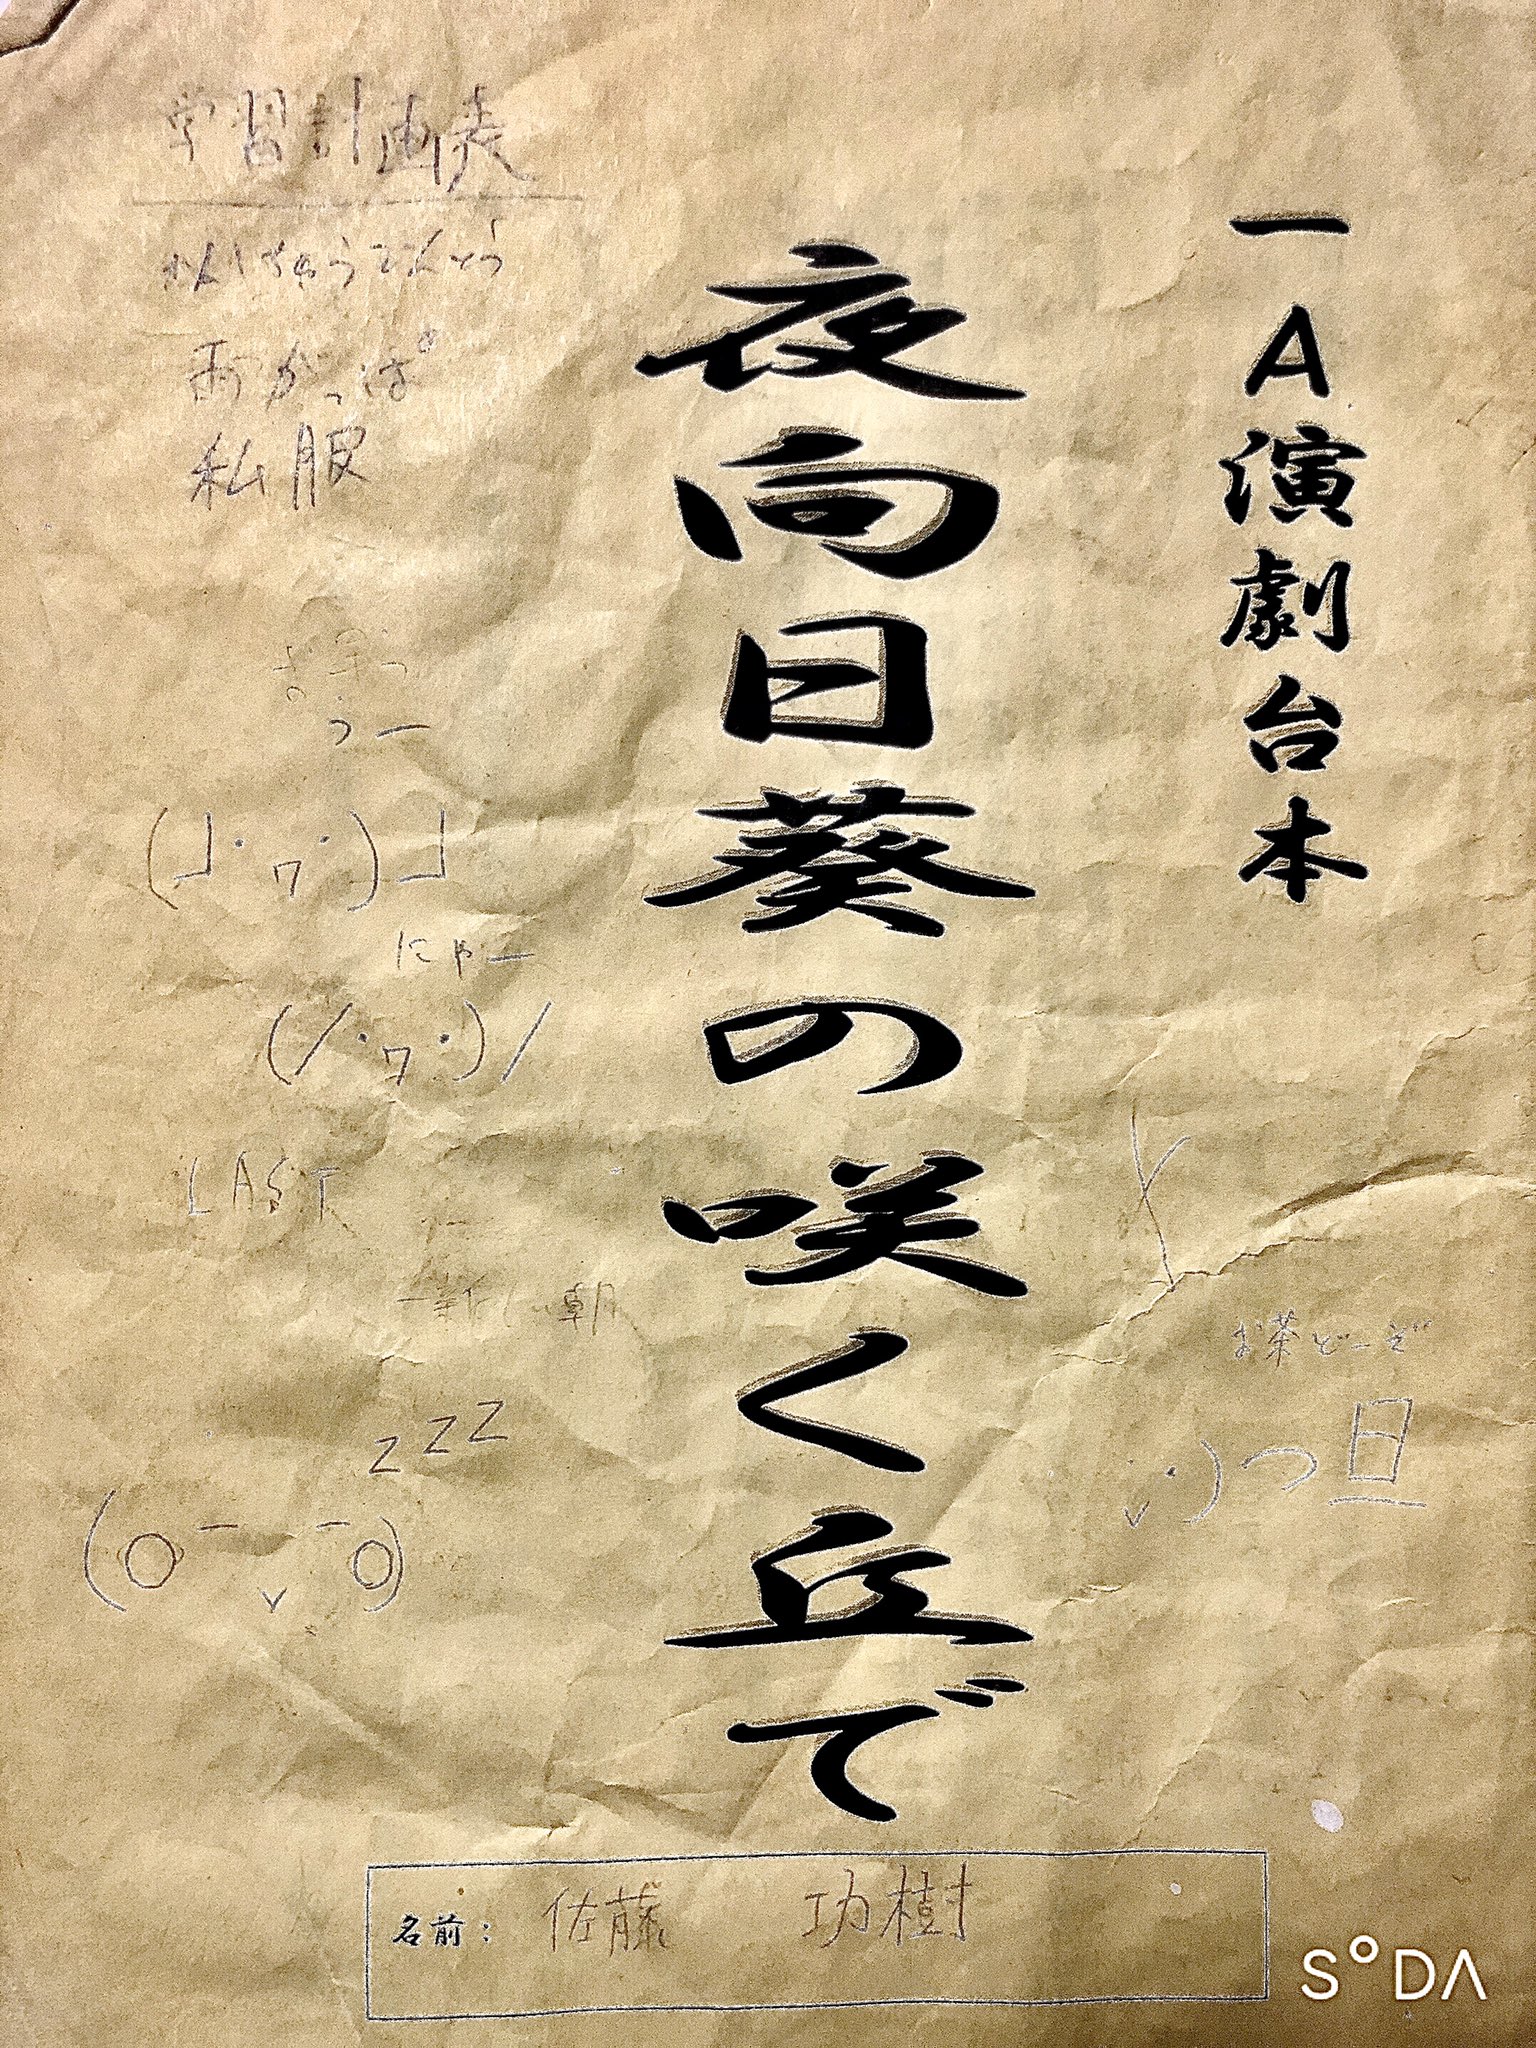 一A演劇台本
夜向日葵の咲く丘で
学習計画表
かいちゅうでんとう
雨がっぱ
私服
うー
(」・ワ・)」
にゃー
(/・ワ・)/
LAST
新しい朝
zzz
(o￣ v ￣o)
お茶どーぞ
・v・)つ旦
名前：佐藤 功樹
SODA